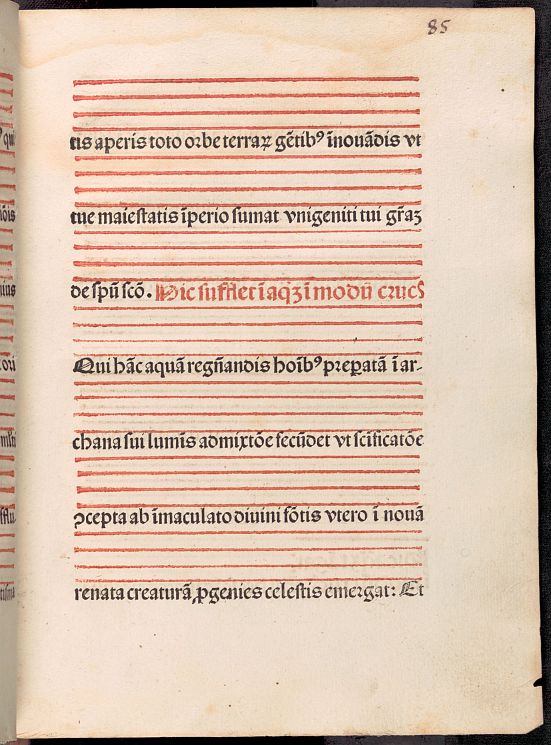 85
tis aperis toto orbe terraꝝ gẽtibꝰ ĩnouãdis vt
tue maiestatis ĩperio sumat vnigeniti tui gr̃aʒ
de spũ scõ. Hic sufflet ĩ aq̃ʒ ĩ modũ crucꝭ
Qui hãc aquãm regñandis hoĩbꝰ preꝑatã ĩ ar-
chana sui lumĩs admixtõe fecũdet vt scificatõe
ꝯcepta ab ĩmaculato diuini fõtis vtero ĩ nouã
renata creaturã ꝓgenies celestis emergat: Et